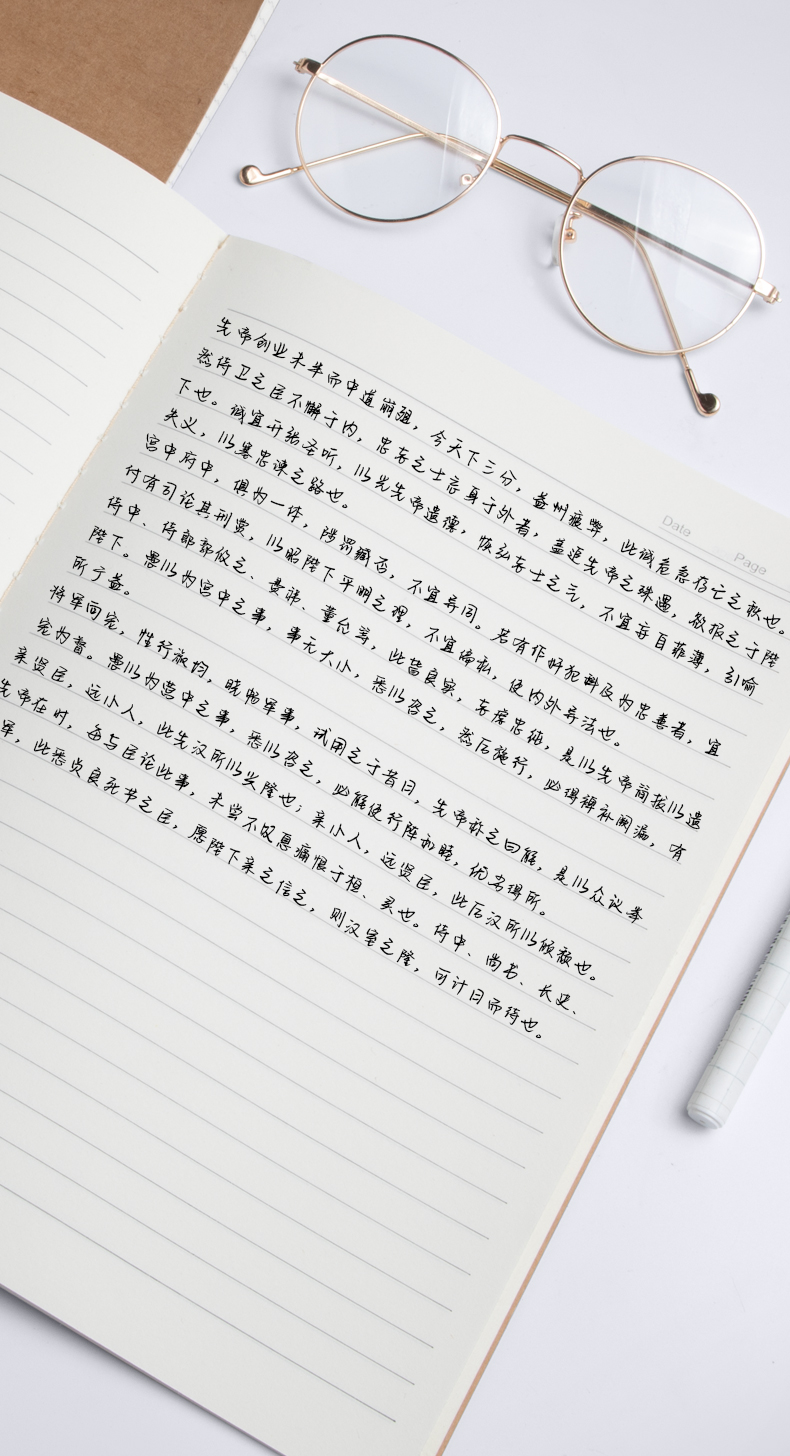 先帝创业未半而中道崩殂，今天下三分，益州疲弊，此诚危急存亡之秋也。
然侍卫之臣不懈于内，忠志之士忘身于外者，盖追先帝之殊遇，欲报之于陛
下也。诚宜开张圣听，以光先帝遗德，恢弘志士之气，不宜妄自菲薄，引喻
失义，以塞忠谏之路也。
宫中府中，俱为一体，陟罚臧否，不宜异同。若有作奸犯科及为忠善者，宜
付有司论其刑赏，以昭陛下平明之理，不宜偏私，使内外异法也。
侍中、侍郎郭攸之、费祎、董允等，此皆良实，志虑忠纯，是以先帝简拔以遗
陛下。愚以为宫中之事，事无大小，悉以咨之，然后施行，必得裨补阙漏，有
所于益。
将军向宠，性行淑均，晓畅军事，试用之于昔日，先帝称之曰能，是以众议举
宠为督。愚以为营中之事，悉以咨之，必能使行阵和睦，优劣得所。
亲贤臣，远小人，此先汉所以兴隆也；亲小人，远贤臣，此后汉所以倾颓也。
先帝在时，每与臣论此事，未尝不叹息痛恨于桓、灵也。侍中、尚书、长史、
军，此悉贞良死节之臣，愿陛下亲之信之，则汉室之隆，可计日而待也。
Date
Page